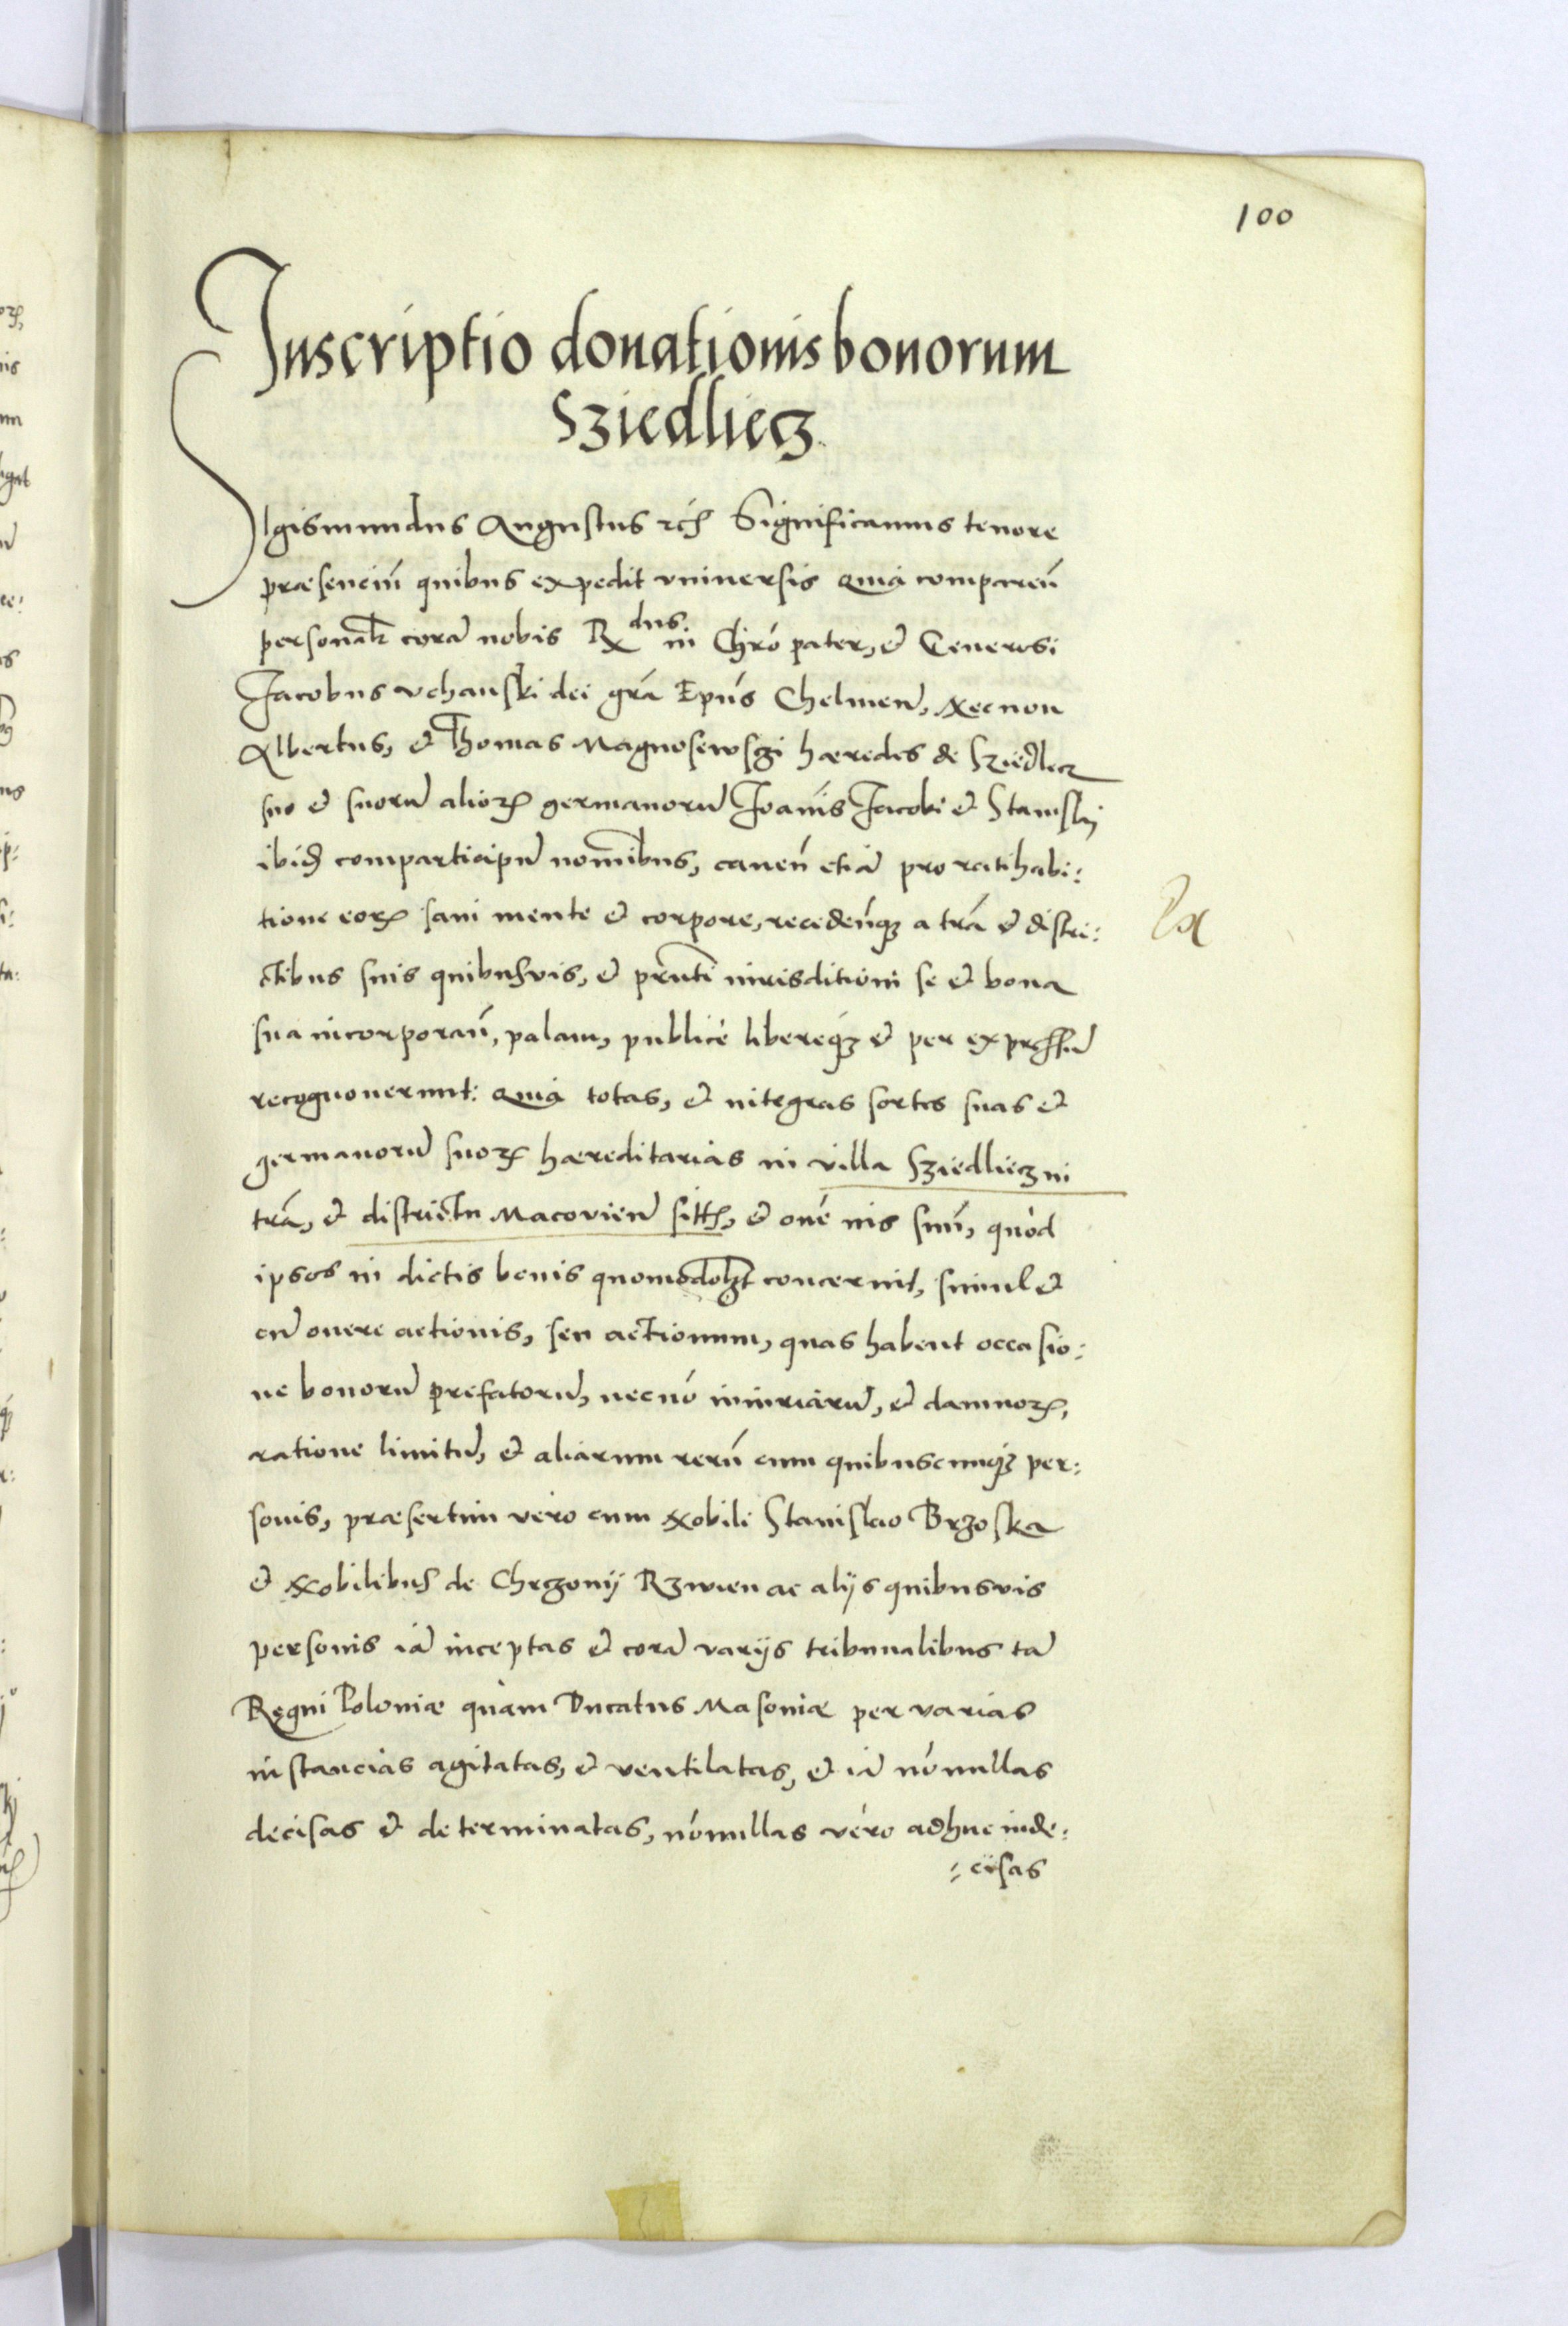 100
Inscriptio donationis bonorum
Sziedliecz
Sigismundus Augustus rc̄ Significamus tenore
præsenciū quibus expedit vniversis quia comparen̄
personalr corā nobis Rdus in Chrō pater, et Generosi
Jacobus vchanski dei grā Epūs Chelmeñ, Necnon
Albertus, et Thomas Magnosewszi hæredes de Sziedlecz
suo et suorū alioꝝ germanorū Joānis Jacobi et Stanislaj
ibid̄ comparticipū nom̄ibus, caven̄ etiā pro ratihabi:
tione eoꝝ sani mente et corpore, recedenq3 a trā et distri:
ctibus suis quibusvis, et pn̄ti iurisditioni se et bona
sua incorporan̄, palam, publicè libereq3 et per expressū
recognoverunt: quia totas, et integras sortes suas et
germanorū suoꝝ hæreditarias in villa Sziedliecz in
trā, et districtu Macovieñ sitt̄, et om̄e ius suū, quòd
ipsos in dictis bonis quomodolzt concernit, simul et
cū onere actionis, seu actionum, quas habent occasio:
ne bonorū prefatorū, necnō iniuriarū, et damnoꝝ,
ratione limitū, et aliarum rerū cum quibuscunq3 per:
sonis, præsertim vero cum Nobili Stanislao Brzoska
et Nobilibus de Chrzonij Rzwien ac alijs quibusvis
personis iā inceptas et corā varijs tribunalibus tā
Regni Poloniæ quàm Ducatus Masoniæ per varias
instancias agitatas, et ventilatas, et iā nōnullas
decisas et determinatas, nōnullas vero adhuc inde:
:cisas